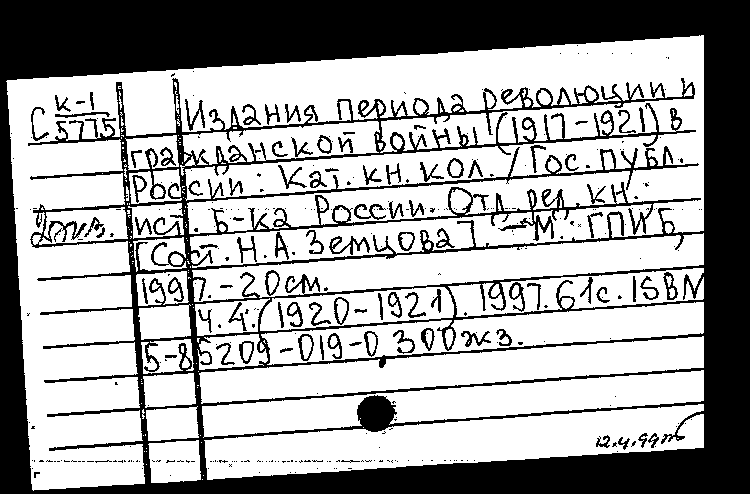 С К-1/5775
Издания периода революции и
гражданской войны (1917-1921) в
России: Кат. кн. кол. / Гос. публ.
2 экз. ист. б-ка России. Отд. ред. кн.;
[Сост. Н.А. Земцова]. - М.: ГПИБ,
1997. - 20 см.
Ч. 4. (1920-1921). 1997. 61 с. ISBN
5-85209-019-0, 300 экз.
12.4.99